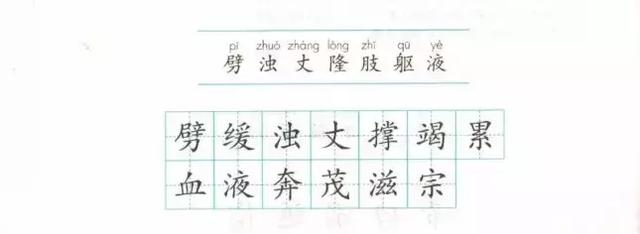 pī zhuó zhàng lóng zhī qū yè
劈 浊 丈 隆 肢 躯 液
劈 缓 浊 丈 撑 竭 累
血 液 奔 茂 滋 宗